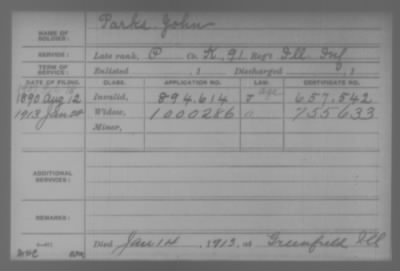 NAME OF SOLDIER: Parks John
SERVICE: Late rank, P Co. K, 91 Reg't Ill Inf
TERM OF SERVICE: Enlisted , 1 Discharged , 1
DATE OF FILING. CLASS. APPLICATION NO. LAW. CERTIFICATE NO.
1890 Aug 12 Invalid, 894.614 J age 657.542
1913 Jan 24 Widow, 1000286 755633
Minor,
ADDITIONAL SERVICES:
REMARKS:
Died Jan 14, 1913, at Greenfield Ill